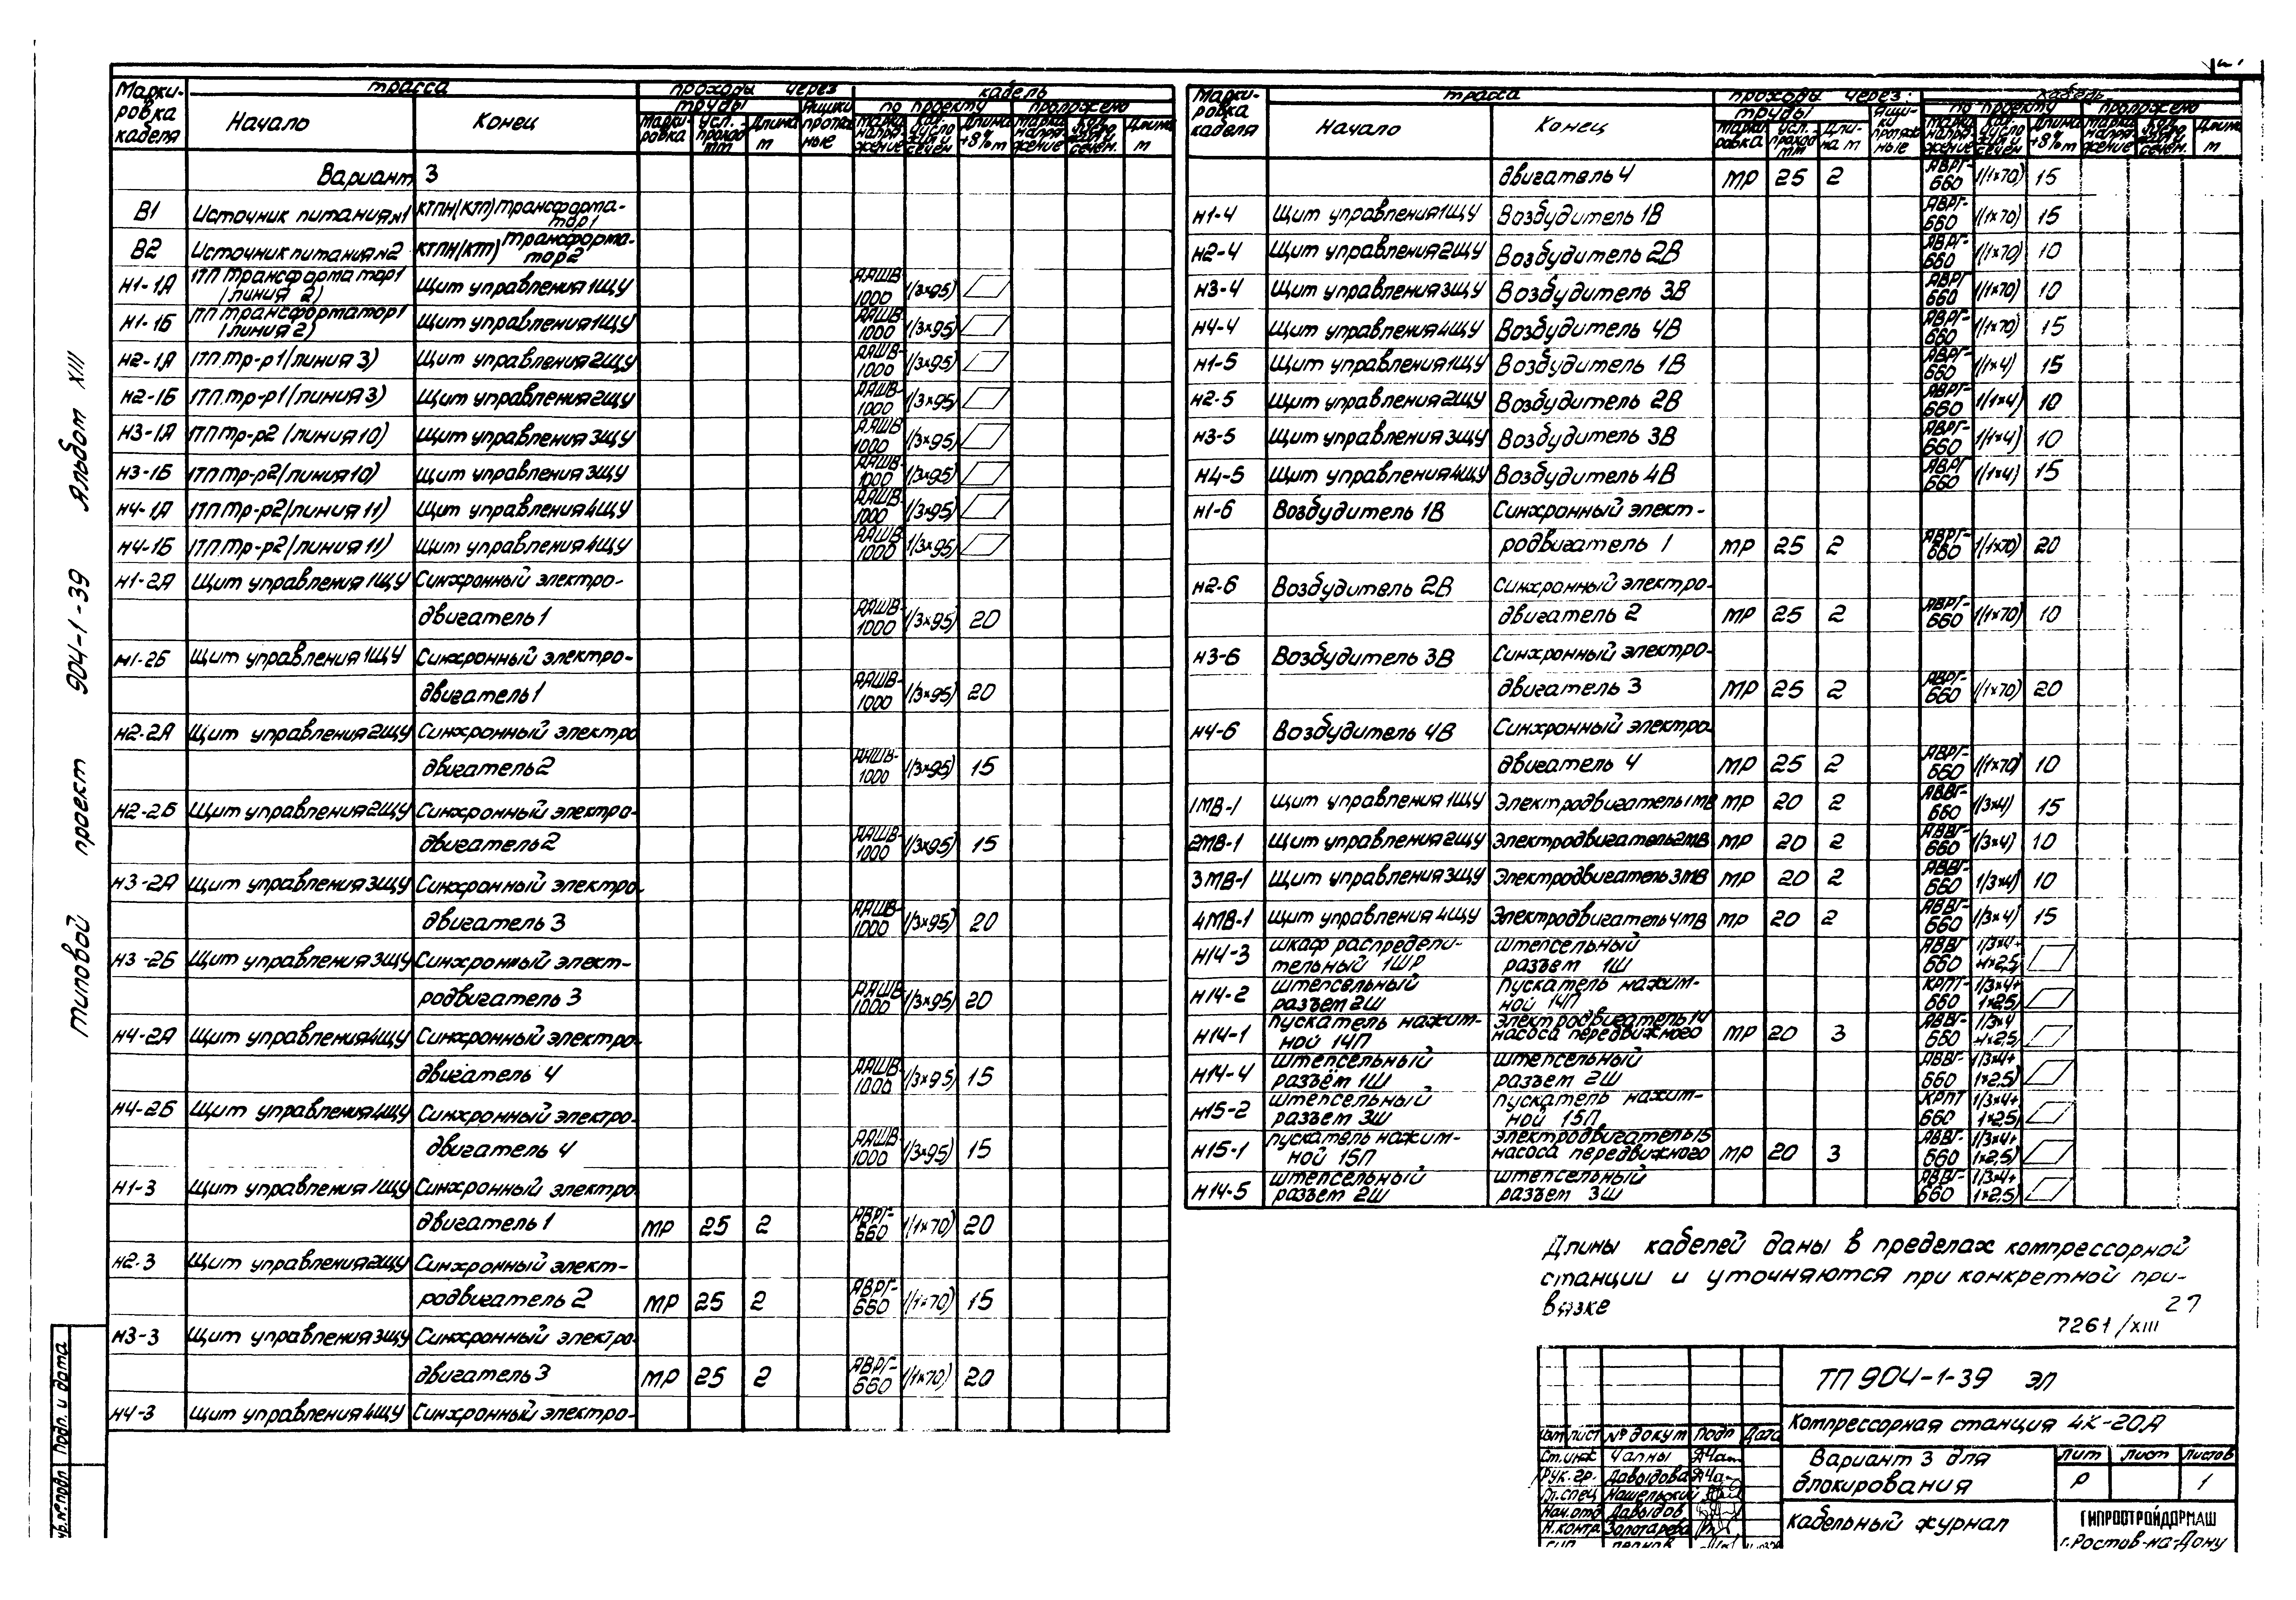 Типовой проект 904-1-39 Альбом XIII
Марки-ровка кабеля
трасса
проходы через
кабель
Начало
Конец
трубы
Ящики протяжные
по проекту
проложено
Марки-ровка
Усл. проход мм
Длина м
Марка напряжение
Кол. число жил и сечен.
Длина +8% м
Марка напряжение
Кол. число жил и сечен.
Длина м
Вариант 3
В1 Источник питания №1 КТПН(КТП) трансформа-тор1
В2 Источник питания №2 КТПН(КТП) трансформа-тор2
Н1-1А 1ТП трансформатор1 (линия 2) Щит управления 1ЩУ ААШВ 1000 1(3×95)
Н1-1Б 1ТП трансформатор1 (линия 2) Щит управления 1ЩУ ААШВ 1000 1(3×95)
Н2-1А 1ТП тр-р1(линия 3) Щит управления 2ЩУ ААШВ-1000 1(3×95)
Н2-1Б 1ТП тр-р1(линия 3) Щит управления 2ЩУ ААШВ 1000 1(3×95)
Н3-1А 1ТП тр-р2 (линия 10) Щит управления 3ЩУ ААШВ 1000 1(3×95)
Н3-1Б 1ТП тр-р2(линия 10) Щит управления 3ЩУ ААШВ 1000 1(3×95)
Н4-1А 1ТП тр-р2(линия 11) Щит управления 4ЩУ ААШВ 1000 1(3×95)
Н4-1Б 1ТП тр-р2(линия 11) Щит управления 4ЩУ ААШВ 1000 1(3×95)
Н1-2А Щит управления 1ЩУ Синхронный электро-
двигатель 1 ААШВ-1000 1(3×95) 20
Н1-2Б Щит управления 1ЩУ Синхронный электро-
двигатель 1 ААШВ-1000 1(3×95) 20
Н2-2А Щит управления 2ЩУ Синхронный электро
двигатель 2 ААШВ-1000 1(3×95) 15
Н2-2Б Щит управления 2ЩУ Синхронный электро-
двигатель 2 ААШВ-1000 1(3×95) 15
Н3-2А Щит управления 3ЩУ Синхронный электро-
двигатель 3 ААШВ-1000 1(3×95) 20
Н3-2Б Щит управления 3ЩУ Синхронный элект-
родвигатель 3 ААШВ 1000 1(3×95) 20
Н4-2А Щит управления 4ЩУ Синхронный электро-
двигатель 4 ААШВ 1000 1(3×95) 15
Н4-2Б Щит управления 4ЩУ Синхронный электро-
двигатель 4 ААШВ 1000 1(3×95) 15
Н1-3 Щит управления 1ЩУ Синхронный электро-
двигатель 1 МР 25 2 АВРГ-660 1(1×70) 20
Н2-3 Щит управления 2ЩУ Синхронный элект-
родвигатель 2 МР 25 2 АВРГ-660 1(1×70) 15
Н3-3 Щит управления 3ЩУ Синхронный электро-
двигатель 3 МР 25 2 АВРГ-660 1(1×70) 20
Н4-3 Щит управления 4ЩУ Синхронный электро-
Марки-ровка кабеля
трасса
проходы через:
кабель
Начало
Конец
трубы
Ящи-ки протяжные
по проекту
проложено
Марки-ровка
Усл. проход мм
Дли-на м
Марка напряжение
Кол. число жил и сечен
Длина +8% м
Марка напряжение
Кол. число жил и сечен.
Длина м
двигатель 4 МР 25 2 АВРГ-660 1(1×70) 15
Н1-4 Щит управления 1ЩУ Возбудитель 1В АВРГ-660 1(1×70) 15
Н2-4 Щит управления 2ЩУ Возбудитель 2В АВРГ-660 1(1×70) 10
Н3-4 Щит управления 3ЩУ Возбудитель 3В АВРГ 660 1(1×70) 10
Н4-4 Щит управления 4ЩУ Возбудитель 4В АВРГ-660 1(1×70) 15
Н1-5 Щит управления 1ЩУ Возбудитель 1В АВРГ-660 1(1×4) 15
Н2-5 Щит управления 2ЩУ Возбудитель 2В АВРГ-660 1(1×4) 10
Н3-5 Щит управления 3ЩУ Возбудитель 3В АВРГ-660 1(1×4) 10
Н4-5 Щит управления 4ЩУ Возбудитель 4В АВРГ 660 1(1×4) 15
Н1-6 Возбудитель 1В Синхронный элект-
родвигатель 1 МР 25 2 АВРГ-660 1(1×70) 20
Н2-6 Возбудитель 2В Синхронный электро-
двигатель 2 МР 25 2 АВРГ-660 1(1×70) 10
Н3-6 Возбудитель 3В Синхронный электро-
двигатель 3 МР 25 2 АВРГ-660 1(1×70) 20
Н4-6 Возбудитель 4В Синхронный электро-
двигатель 4 МР 25 2 АВРГ-660 1(1×70) 10
1МВ-1 Щит управления 1ЩУ Электродвигатель 1МВ МР 20 2 АВВГ-660 1(3×4) 15
2МВ-1 Щит управления 2ЩУ Электродвигатель 2МВ МР 20 2 АВВГ-660 1(3×4) 10
3МВ-1 Щит управления 3ЩУ Электродвигатель 3МВ МР 20 2 АВВГ-660 1(3×4) 10
4МВ-1 Щит управления 4ЩУ Электродвигатель 4МВ МР 20 2 АВВГ-660 1(3×4) 15
Н14-3 шкаф распредели-тельный 1ШР штепсельный разъем 1Ш АВВГ 660 1(3×4+1×2,5)
Н14-2 штепсельный разъем 2Ш Пускатель нажим-ной 14П КРПТ-660 1(3×4+1×2,5)
Н14-1 Пускатель нажим-ной 14П Электродвигатель 14 насоса передвижного МР 20 3 АВВГ-660 1(3×4+1×2,5)
Н14-4 штепсельный разъём 1Ш штепсельный разъем 2Ш АВВГ-660 1(3×4+1×2,5)
Н15-2 штепсельный разъем 3Ш пускатель нажим-ной 15П КРПТ 660 1(3×4+1×2,5)
Н15-1 пускатель нажим-ной 15П электродвигатель 15 насоса передвижного МР 20 3 АВВГ-660 1(3×4+1×2,5)
Н14-5 штепсельный разъем 2Ш штепсельный разъем 3Ш АВВГ-660 1(3×4+1×2,5)
Длины кабелей даны в пределах компрессорной
станции и уточняются при конкретной при-
вязке
27
7261/XIII
ТП 904-1-39 ЭЛ
Компрессорная станция 4К-20А
Вариант 3 для
блокирования
Лит Лист Листов
Р 1
Кабельный журнал
ГИПРОСТРОЙДОРМАШ
г.Ростов-на-Дону
Изм Лист № докум Подп Дата
Ст.инж Чалны
Рук.гр. Давыдова
Гл.спец Нашельский
Нач.отд Давыдов
Н.контр. Золотарева
Подп. и дата
Инв.№ подл